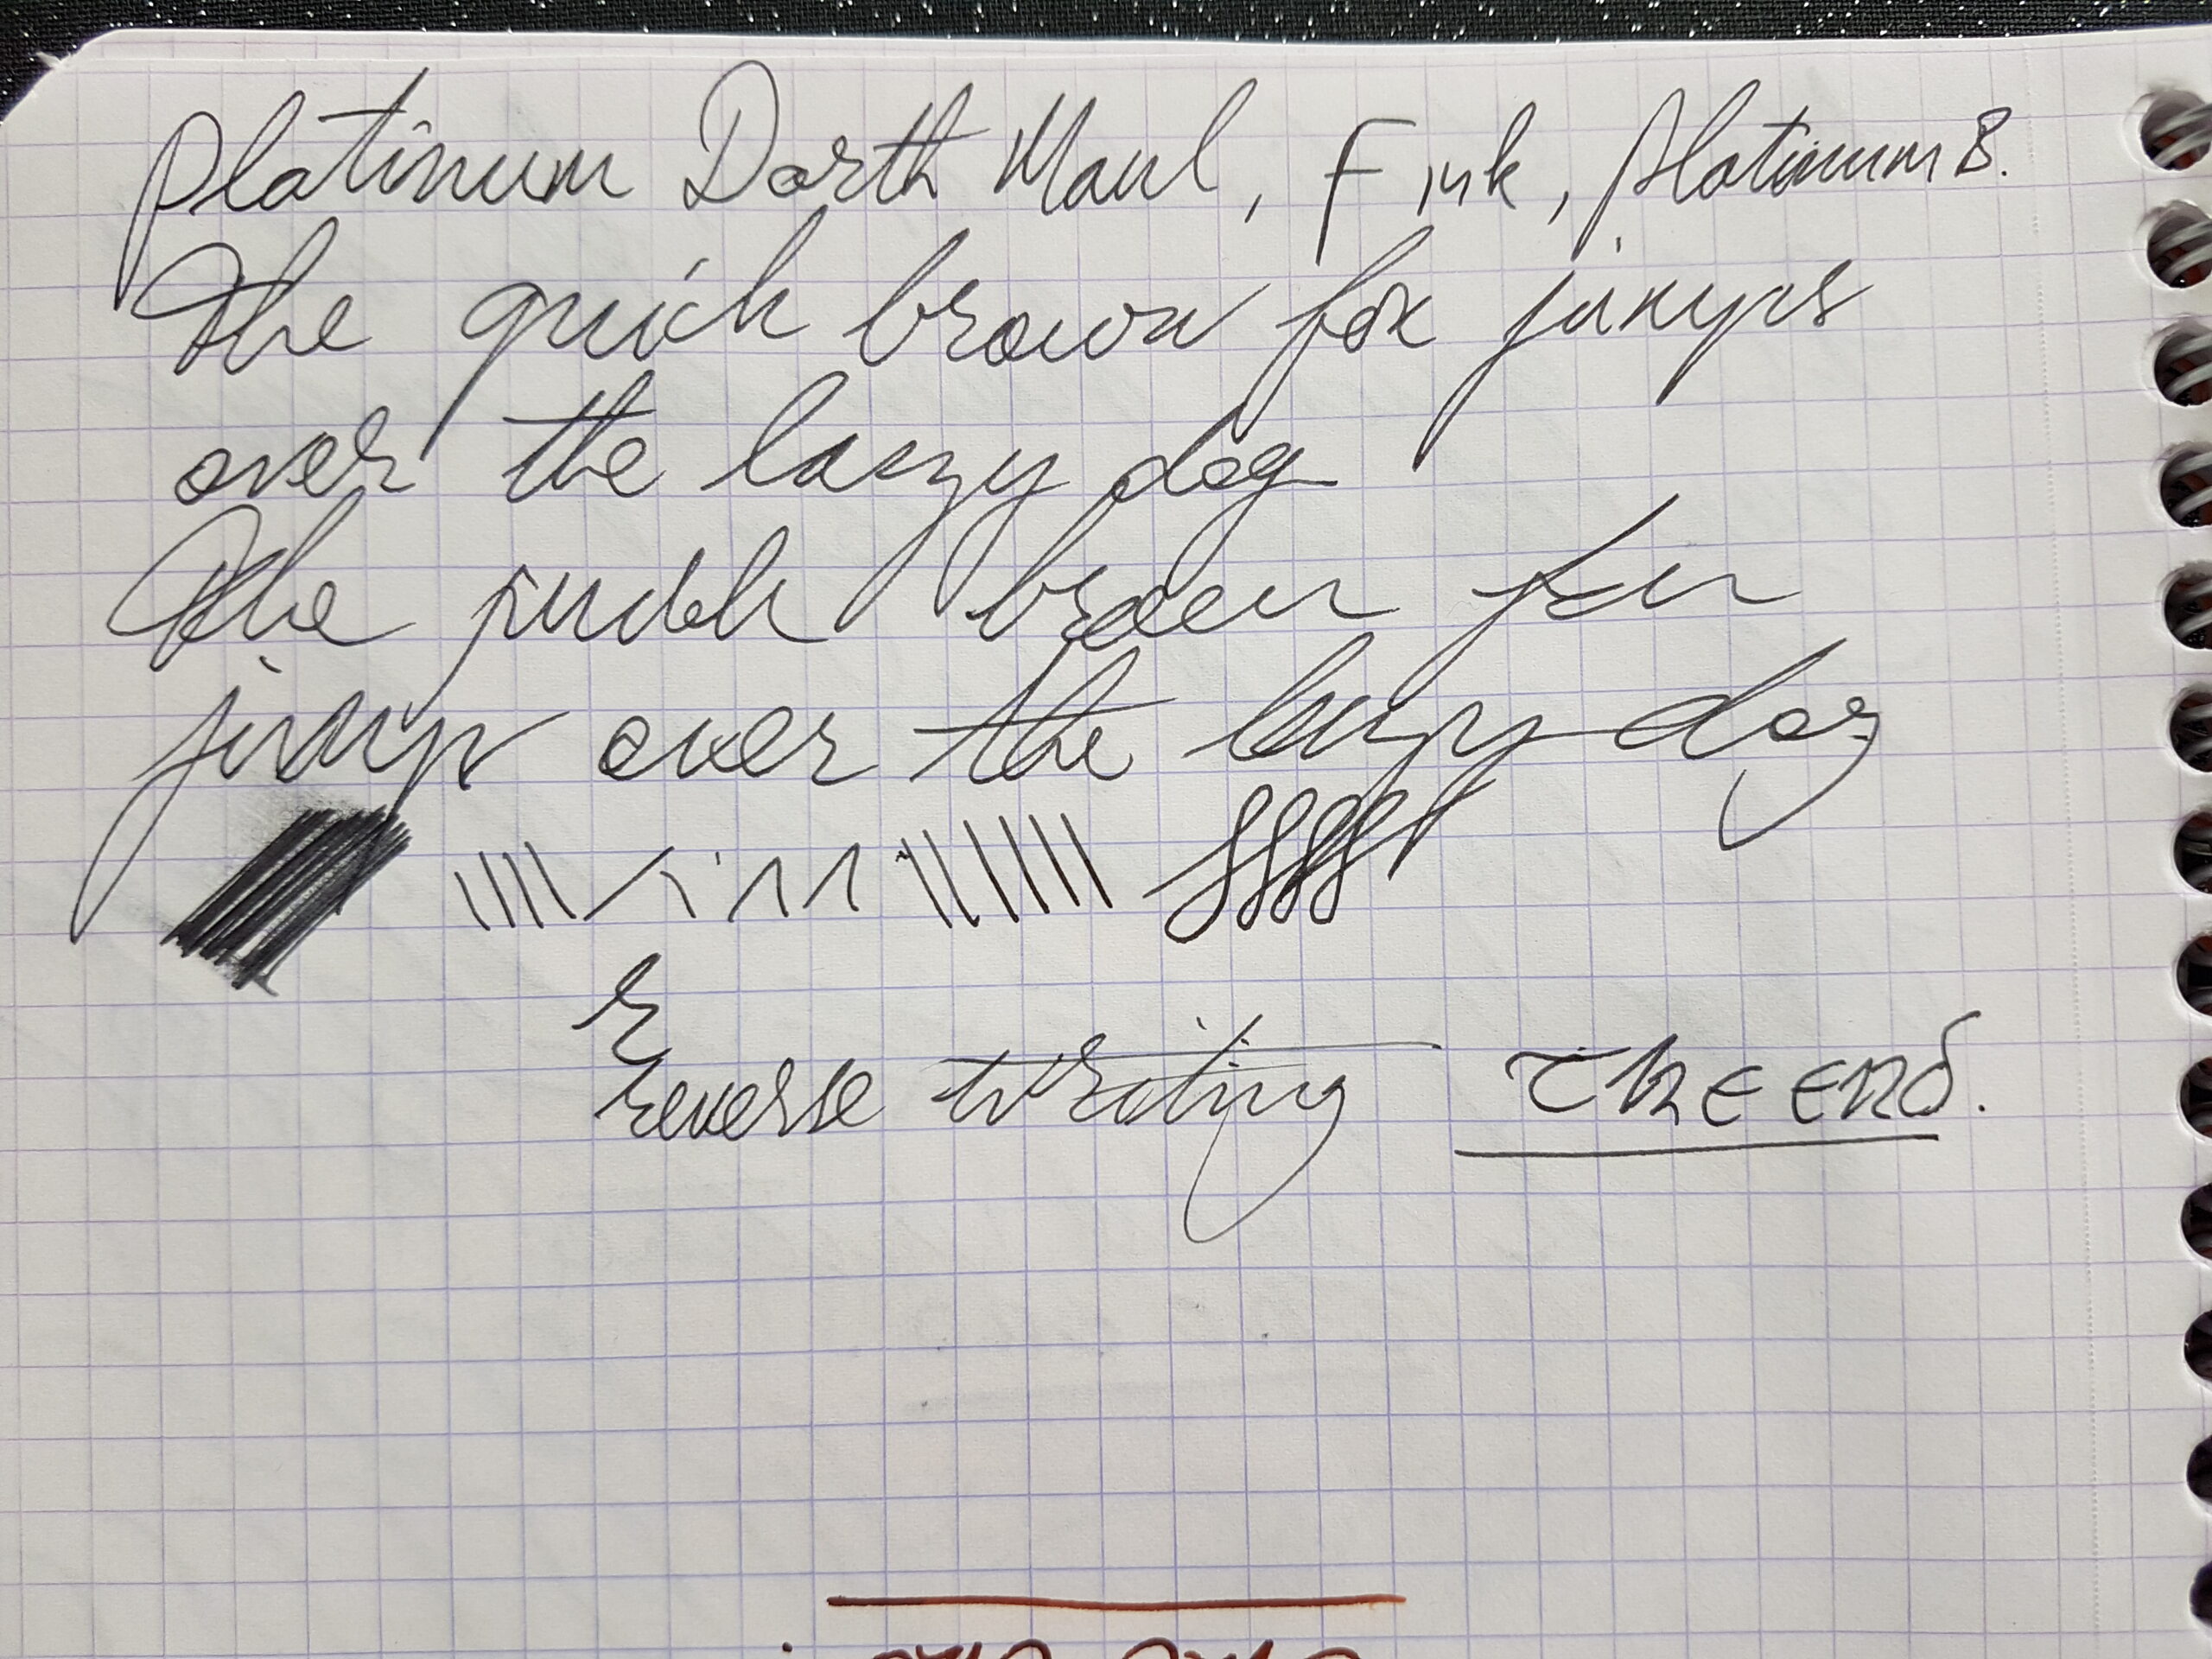 Platinum Darth Maul, F ink, Platinum B.
The quick brown fox jumps
over the lazy dog
The quick brown fox
jump over the lazy dog
reverse writing THE END.